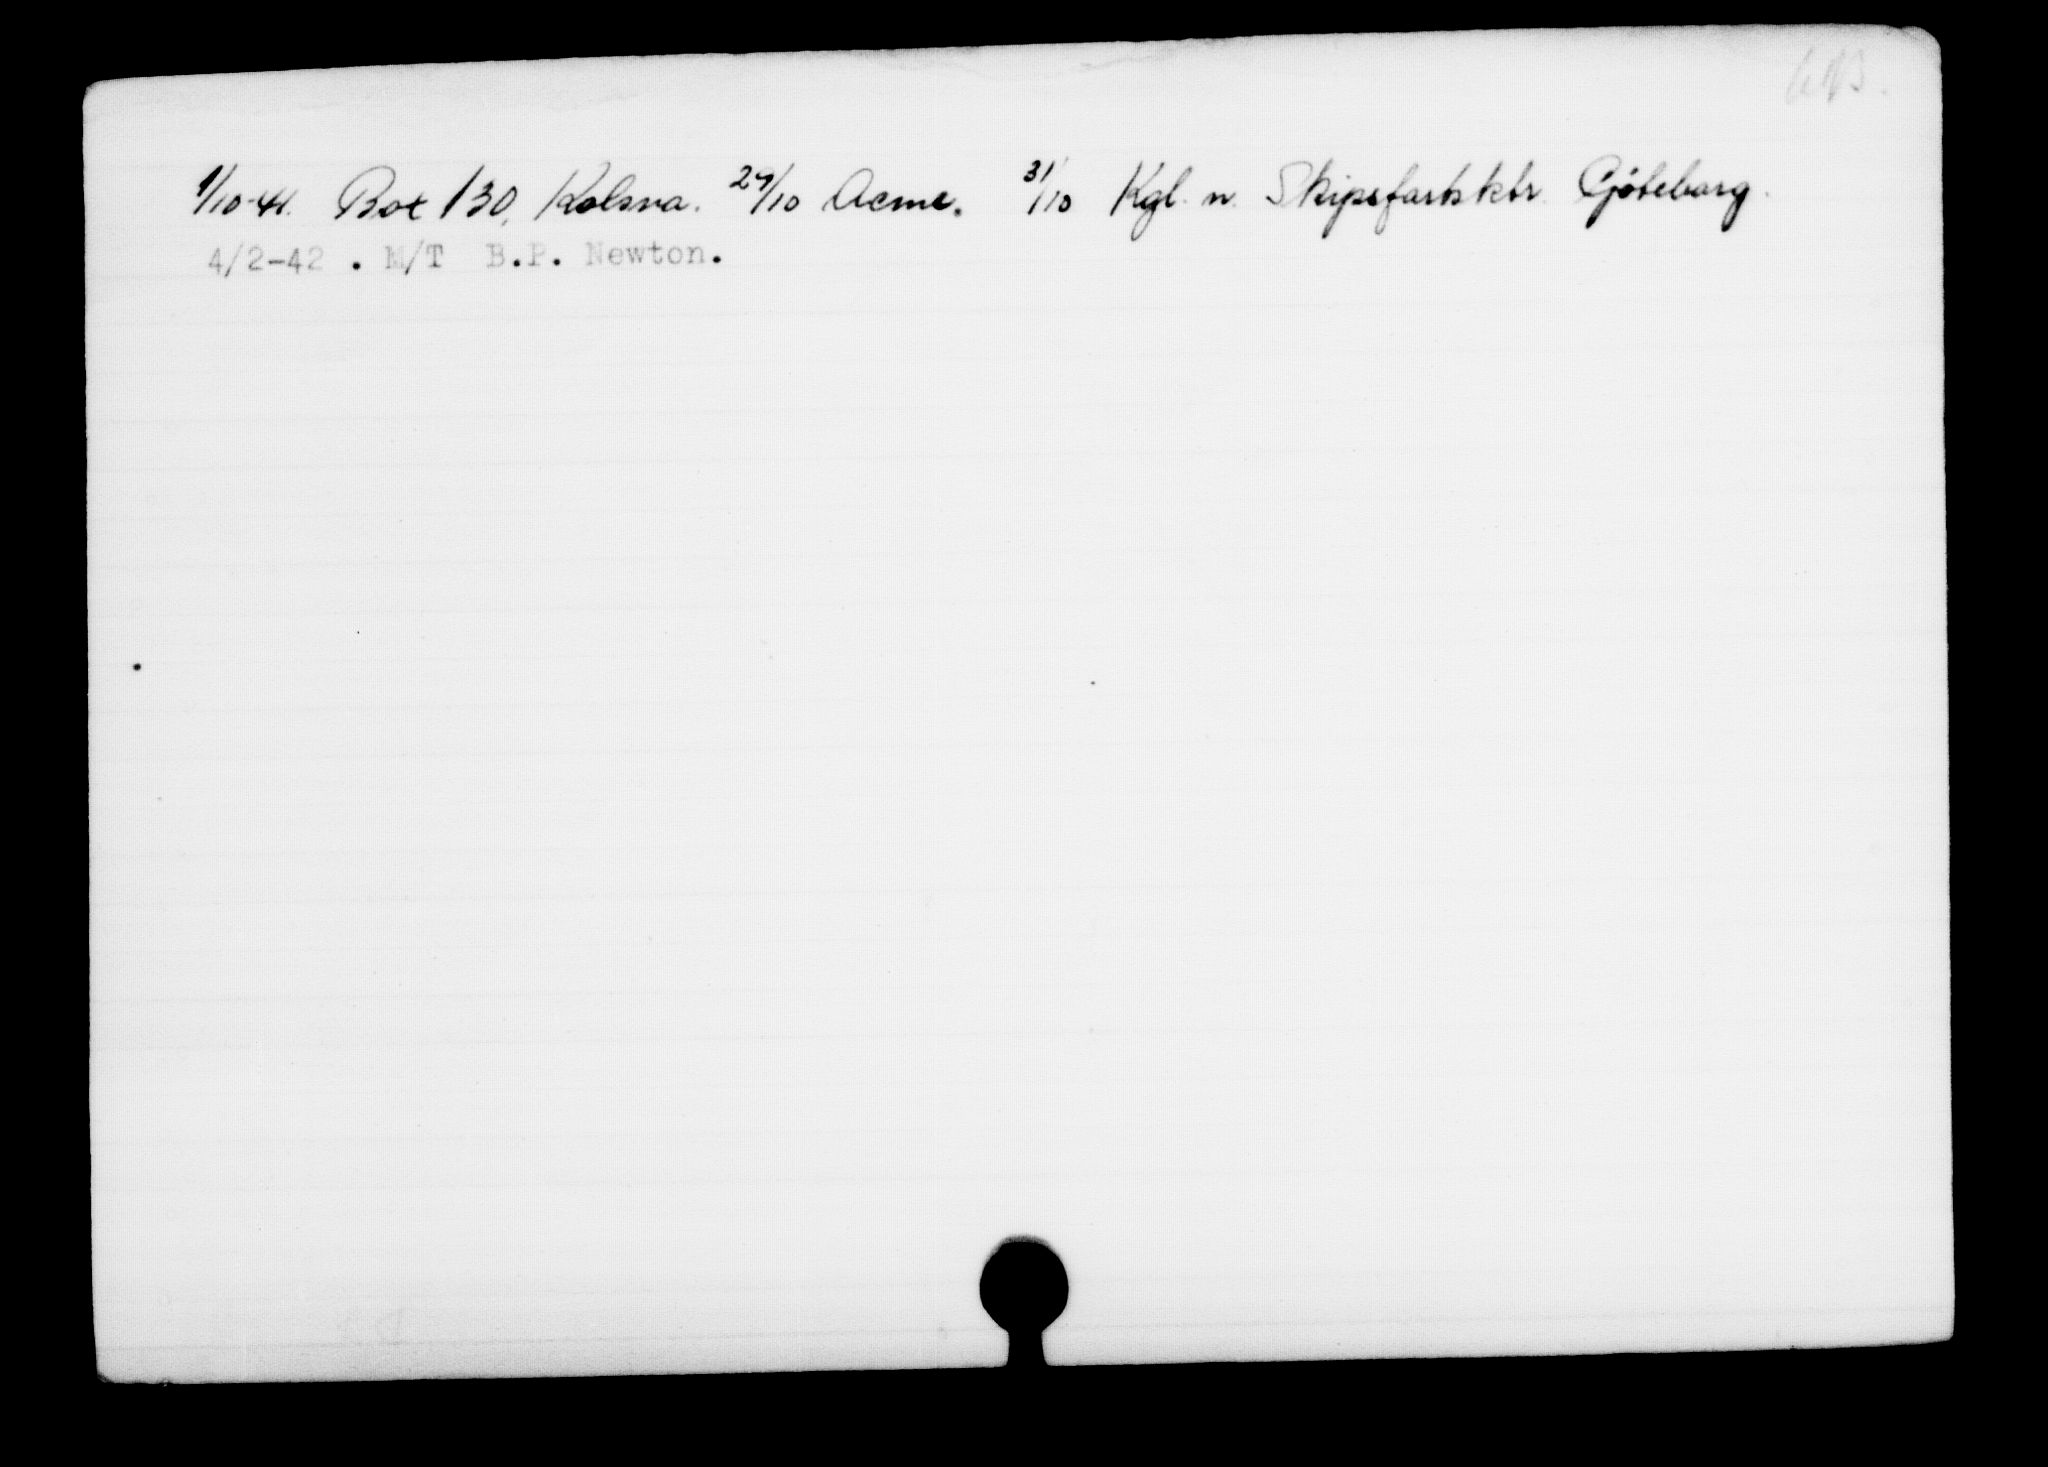 1/10-41. Box 130, Kolsva. 27/10 Acme. 31/10 Kgl. n. Skipsfartsktr. Gøteborg.
4/2-42 . M/T B.P. Newton.